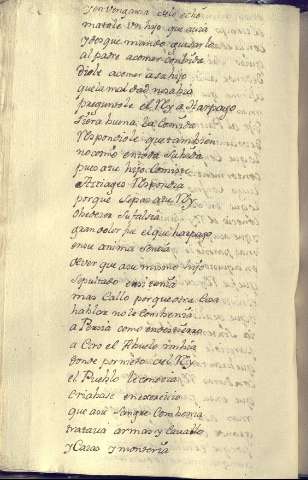 y en venganza
matale Vn hijo que auia
y despues mando
al padre a comer
diole a comer a su hijo
que la mal dad no sabia
preguntole el Rey a Harpago
si era buena la Comida
Respondiole que tambien
no comio en toda su vida
pues a tu hijo Comiste
Astiages Respondia
porque sepas a tu Rey
obedecer
gran dolor fue el que harpago
en su anima sentia
de ver que a su mismo hijo
sepultado en si tenia
mas Callo porque otra Cosa
hablar no le Conbenia
a Persia como en destierro
a Ciro el Abuelo imbia
donde por nieto del Rey
el Pueblo le conocia
Criabase en exercicio
que a su Sangre Conbenia
trataua armas y Cauallo
y Casas y monteria